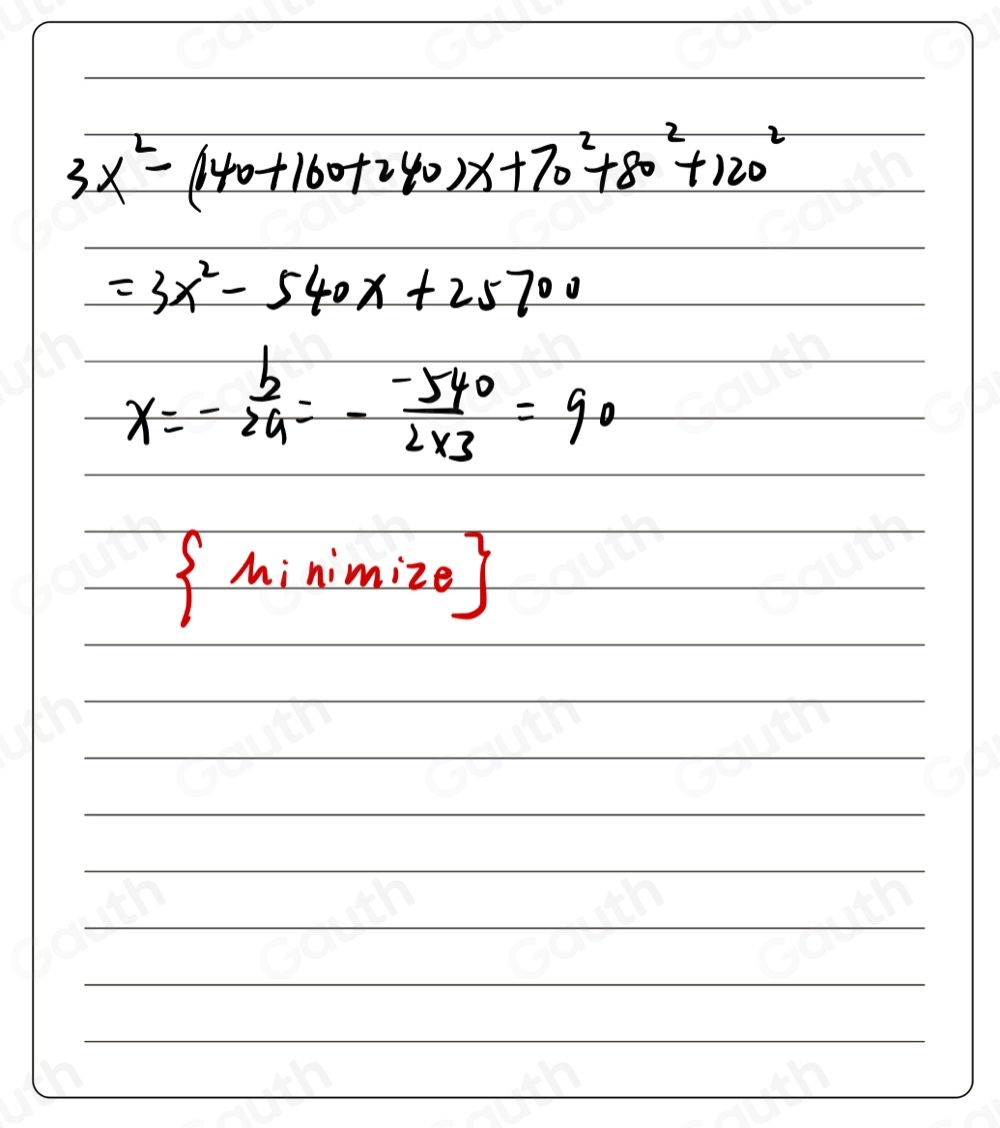 3x² - (140+160+240)x+70²+80²+120²
= 3x² - 540x + 25700
x = - b/2a = - -540/2×3 = 90
{ Minimize ]
Gauth